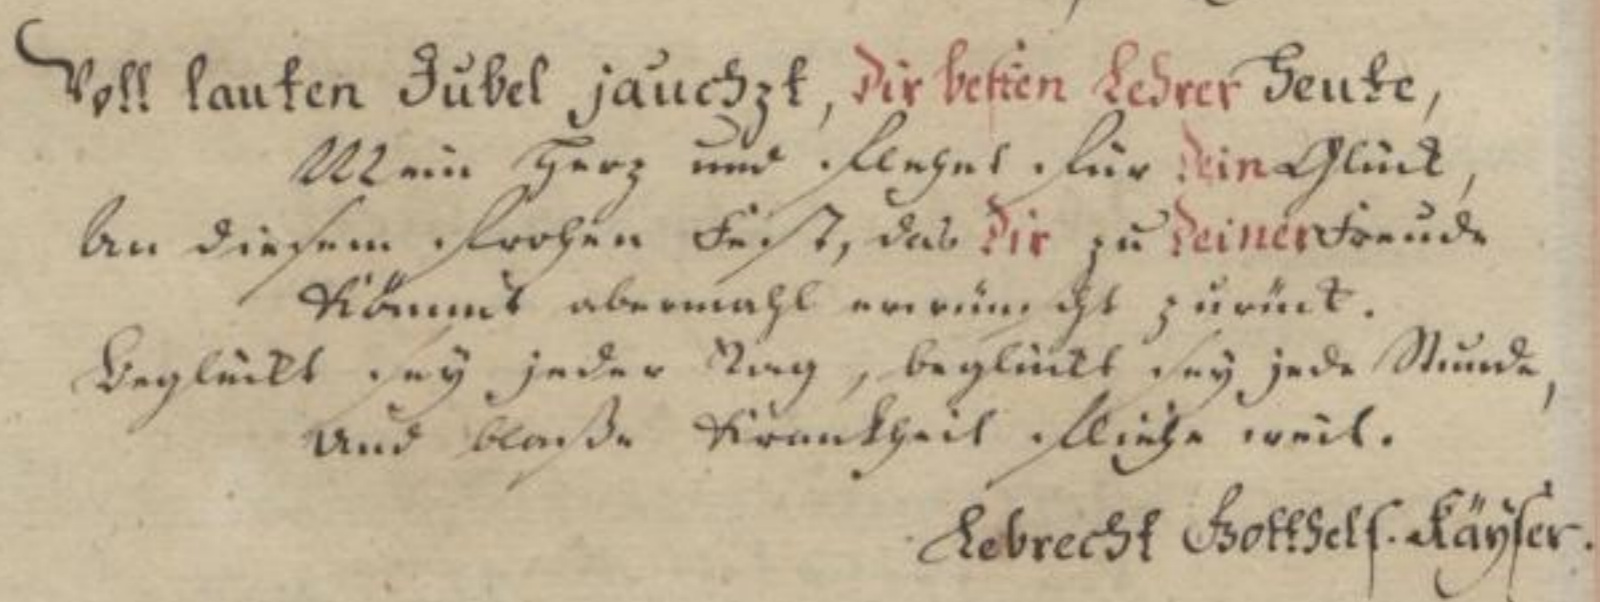 Voll lauten Jubel jauchzt, Dir besten Lehrer heute,
Mein Herz und flehet für Dein Glück,
An diesem frohen Fest, das Dir zu Deiner Freude
Kömmt abermahl erwünscht zurück.
Beglückt sey jeder Tag, beglückt sey jede Stunde,
Und blaße Krankheit fliehe weit.
Lebrecht Gotthelf Käyser.